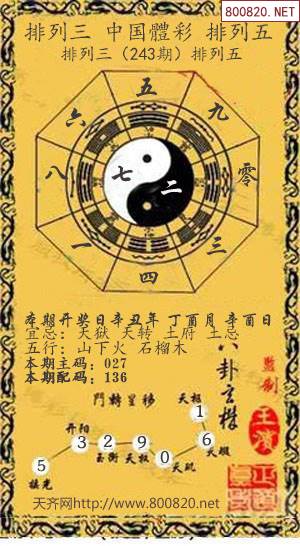 800820.NET
排列三 中国體彩 排列五
排列三（243期）排列五
五
六 九
八 七 二 零
一 三
四
本期开奖日辛丑年 丁酉月 辛酉日
宜忌：天狱 天转 土府 土忌
五行：山下火 石榴木
本期主码：027
本期配码：136
八卦玄機
監制
門轉星移
天枢
1
开阳
3 2 9 6
玉衡 天权 天璇
5 0 天玑
摇光
天齐网http://www.800820.net